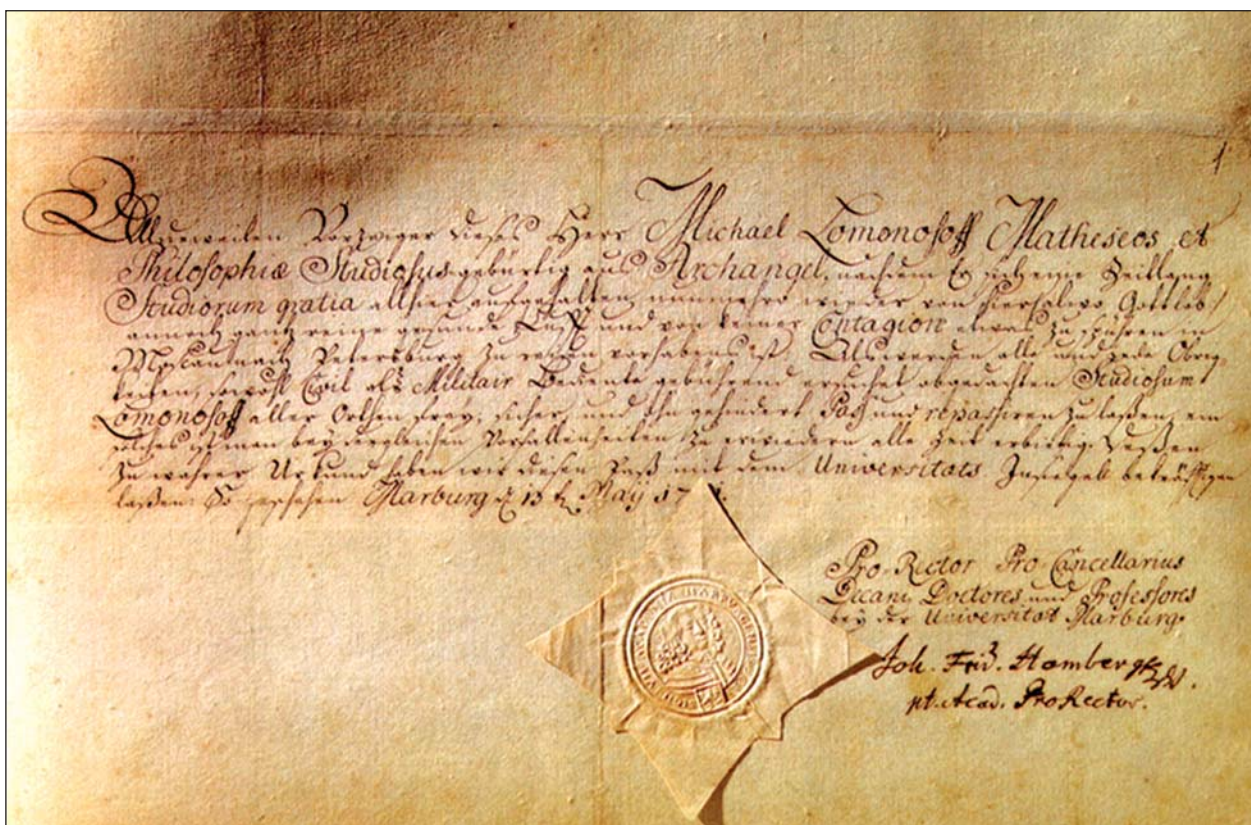 1
Alldieweilen Vorzeiger dieses Herr Michael Lomonosoff Matheseos et
Philosophiæ Studiosus gebürtig aus Archangel, nachdem Er sich eine Zeitlang
Studiorum gratia allhier aufgehalten, nunmehro wieder von hier, alwo Gottlob/
annoch gantz reine gesunde Lufft und von keiner Contagion etwas zu spühren in
Moscau nach Petersburg zu reisen vorhabens ist; Als werden alle und jede Obrig-
keiten, sowohl Civil als Militair Bediente gebührend ersuchet obgedachten Studiosum
Lomonosoff aller Orthen frey, sicher, und ohngehindert Pass und repassiren zu laßen, ein
solches ist man bey dergleichen Vorfallenheiten zu erwiedern alle Zeit erbietig. Deßen
zu wahrer Urkund haben wir diesen Paß mit dem Universitäts Insiegel bekräfftigen
laßen. So geschehen Marburg d 13 May 17
Pro-Rector Pro-Cancellarius
Decani Doctores und Professores
bey der Universität Marburg.
Joh. Frid. Homberg
pt. Acad. ProRector.